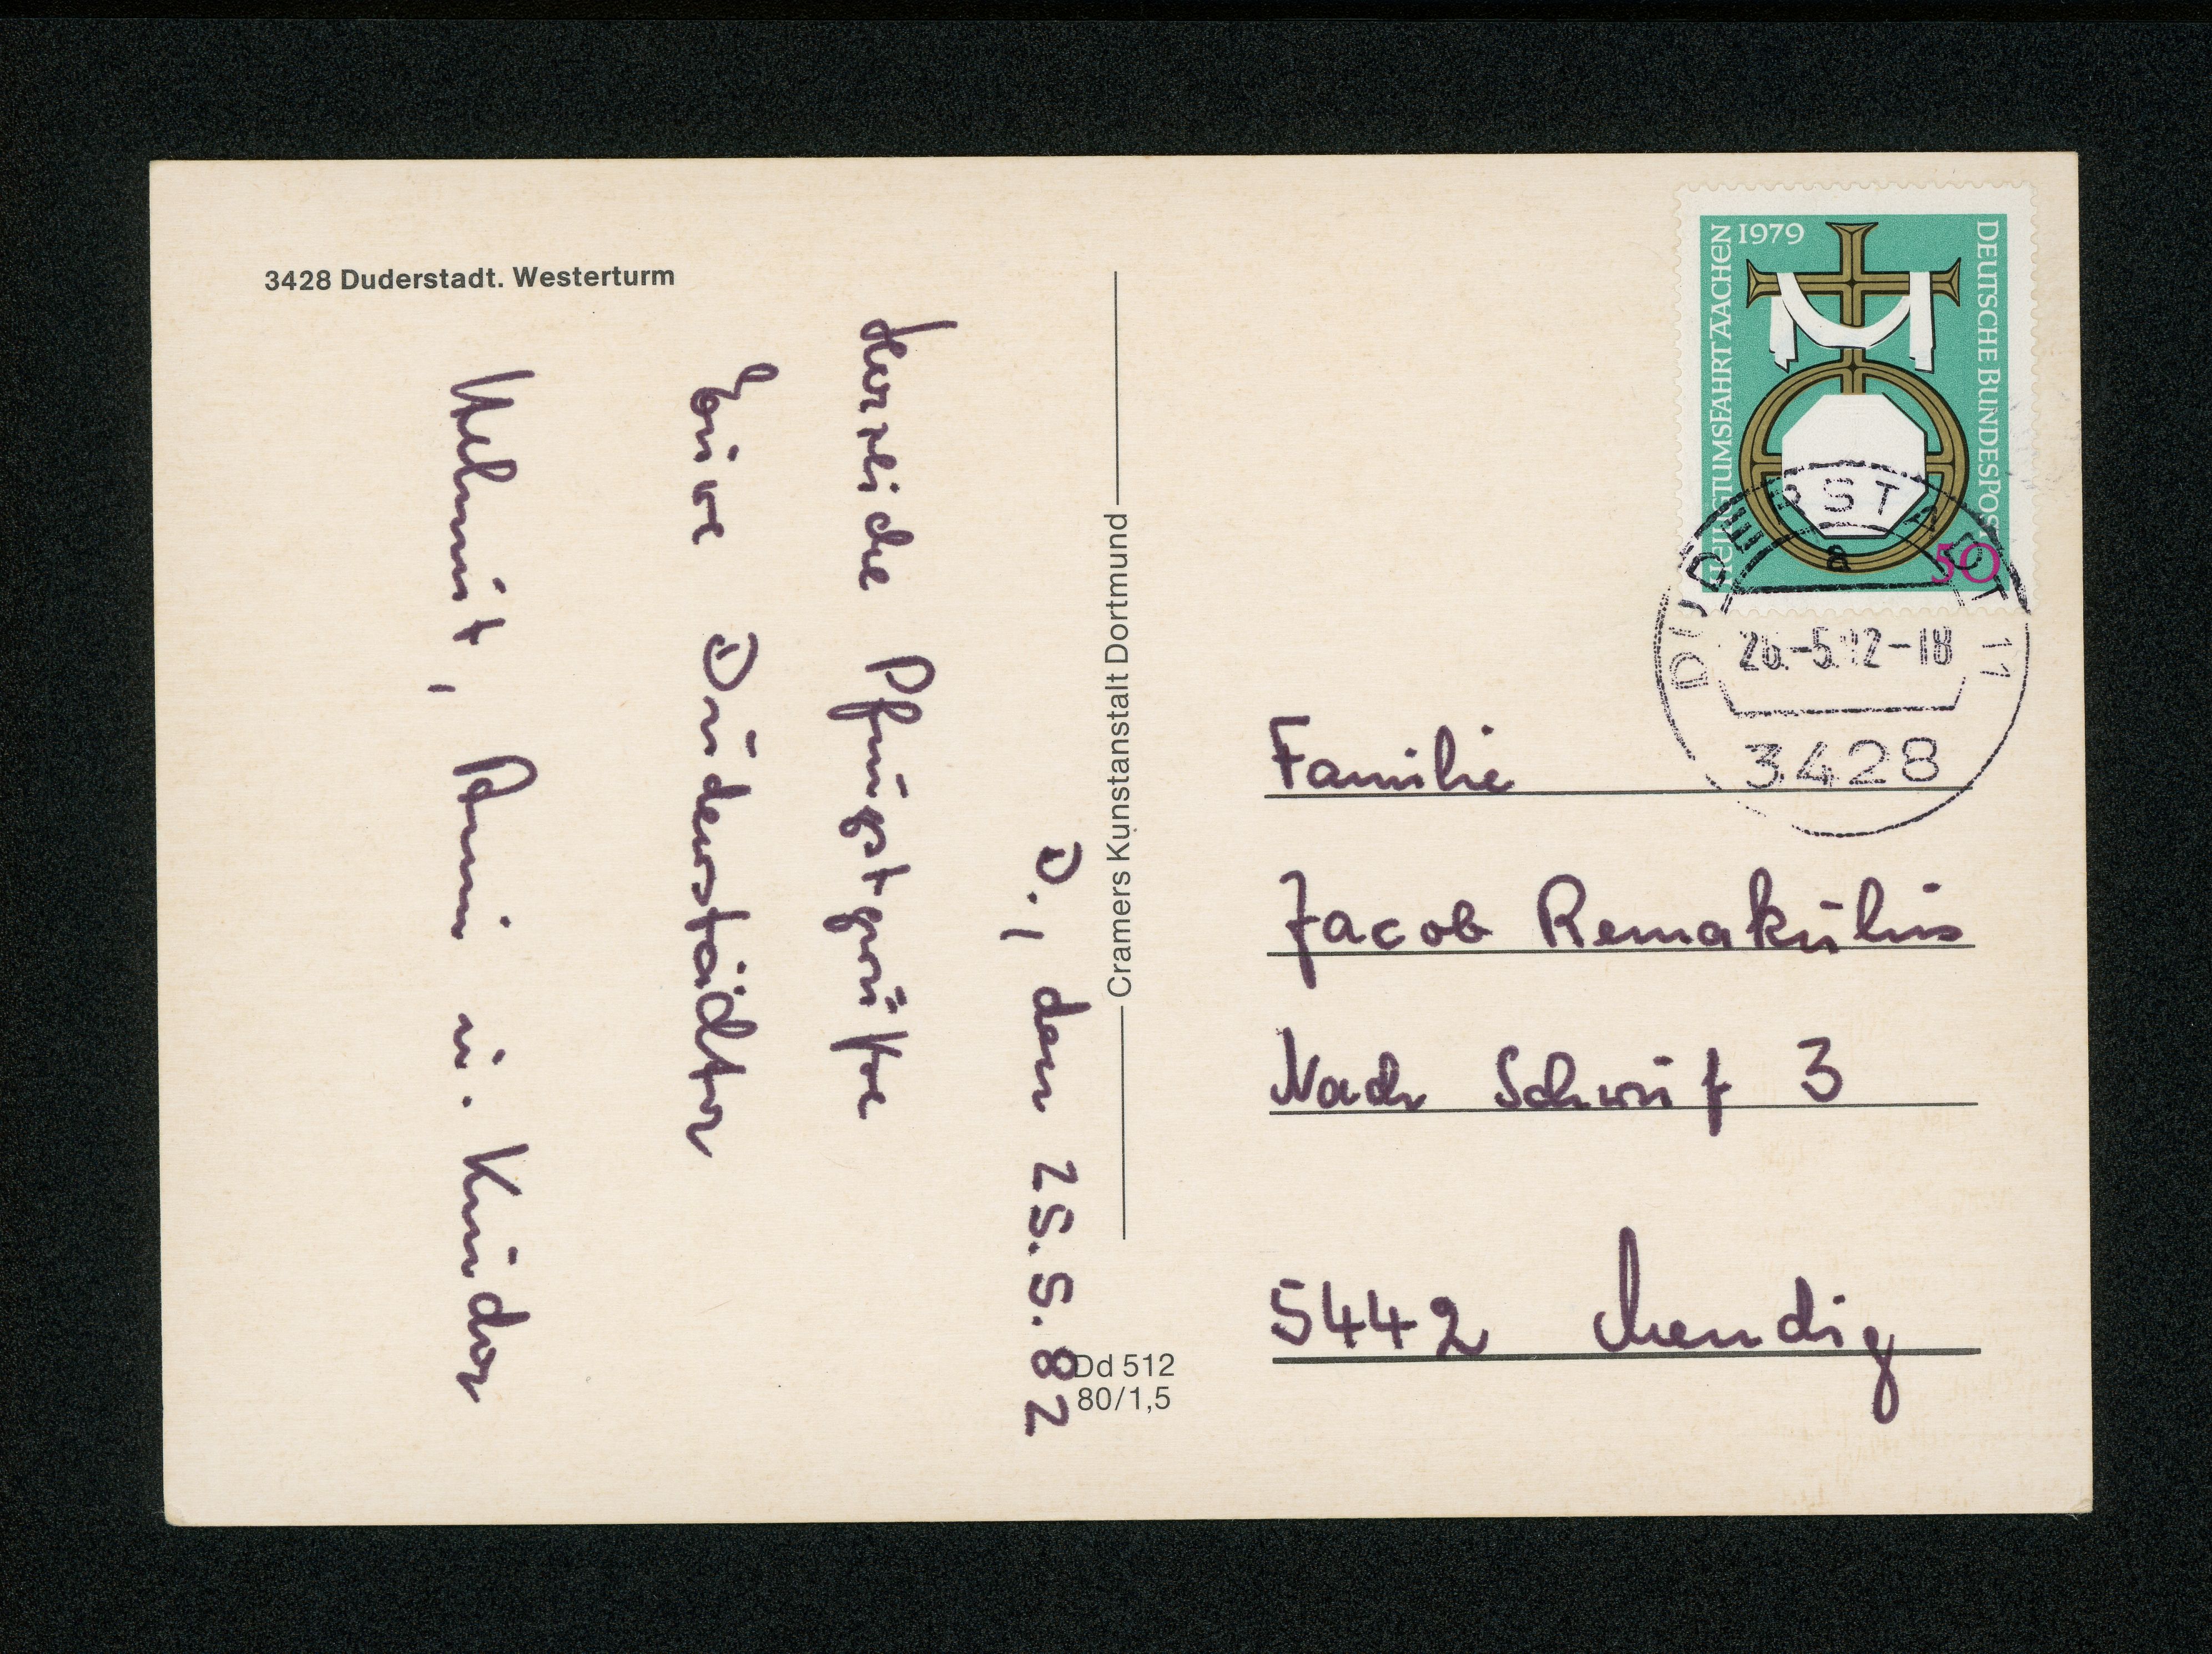 3428 Duderstadt. Westerturm
D., den 25.5.82
Herzliche Pfingstgrüße
Eure Duderstädter
Helmut, Anni u. Kinder
Cramers Kunstanstalt Dortmund
Dd 512
80/1,5
1979
HEILIGTUMSFAHRT AACHEN
DEUTSCHE BUNDESPOST
50
DUDERSTADT 11
a
26.-5. 12-18
3428
Familie
Jacob Remakulus
Nach Schruf 3
5442 Mendig